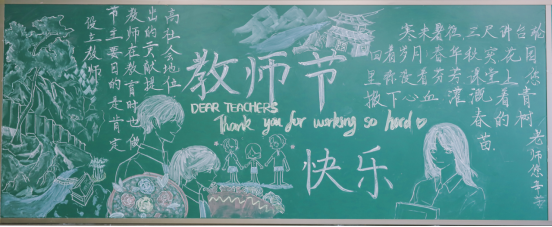 设立教师
节主要目的是肯定
教师在教育时也做
出的贡献提
高社会地位
教师节
DEAR TEACHERS
Thank you for working so hard
快乐
寒来暑往三尺讲台轮
回着岁月春华秋实花园
里弥漫着芬芳课堂上您
撒下心血灌溉着青
春的树
苗。
老师您辛苦